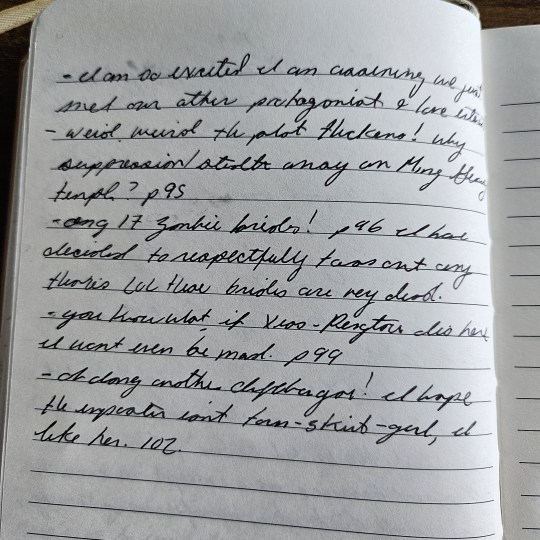 - I am so excited I am assuming we just
met our other protagonist & love
- weird weird the plot thickens! why
suppression/stealth array on Ming
temple? p95
- omg 17 zombie brides! p96 I have
decided to respectfully toss out any
theories lol these brides are very dead.
- you know what if Xiao- dies here
I wont even be mad. p99
- ding dong another cliffhanger! I hope
the imposter isnt torn-skirt-girl, I
like her. 102.